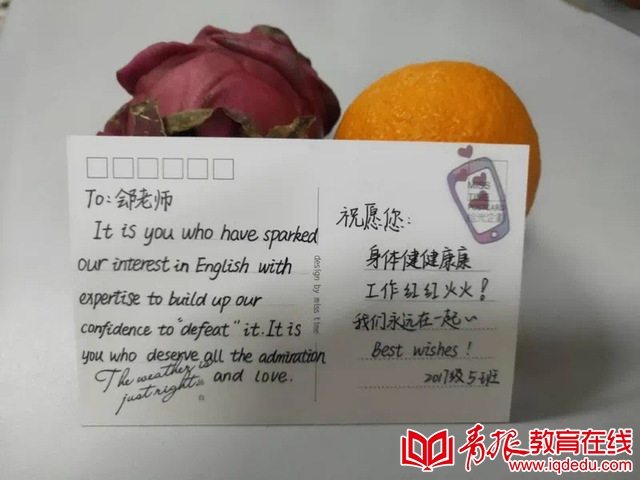 To: 舒老师
It is you who have sparked
our interest in English with
expertise to build up our
confidence to "defeat" it. It is
you who deserve all the admiration
and love.
The weather is
just right.
design by miss time
祝愿您:
身体健健康康
工作红红火火!
我们永远在一起~
Best wishes!
2017级5班
MISS
拾光企划
青报教育在线
www.iqdedu.com